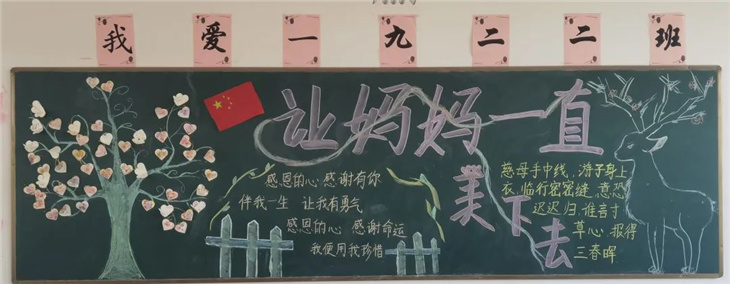 我爱一九二二班
让妈妈一直
美下去
感恩的心 感谢有你
伴我一生 让我有勇气
感恩的心 感谢命运
我便用我珍惜
慈母手中线,游子身上
衣.临行密密缝,意恐
迟迟归.谁言寸
草心,报得
三春晖